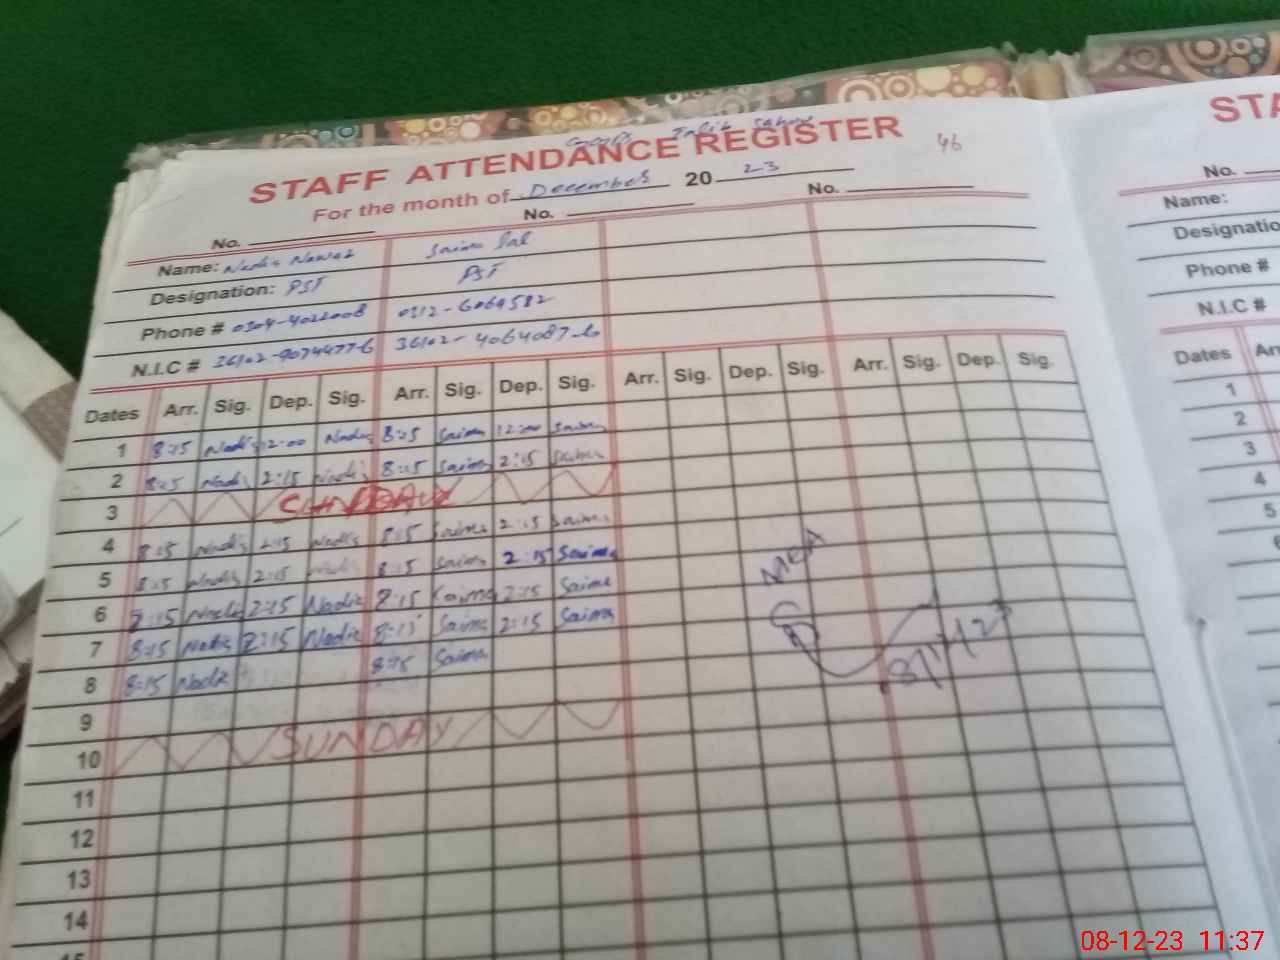 STAFF ATTENDANCE REGISTER STA
46
For the month of December 20 23
No. No. No. No.
Name: Nadia Nawaz Saima Name:
Designation: PST PST Designatio
Phone # 0304-4022008 0312-6064582 Phone #
N.I.C # 36102-9074477-6 36102-4064087-6 N.I.C #
Dates Arr. Sig. Dep. Sig. Arr. Sig. Dep. Sig. Arr. Sig. Dep. Sig. Arr. Sig. Dep. Sig. Dates Arr
1 8:15 Nadia 12:00 Nadia 8:15 Saima 12:00 Saima 1
2 8:15 Nadia 2:15 Nadia 8:15 Saima 2:15 Saima 2
3 SUNDAY 3
4 8:15 Nadia 2:15 Nadia 8:15 Saima 2:15 Saima 4
5 8:15 Nadia 2:15 Nadia 8:15 Saima 2:15 Saima 5
6 8:15 Nadia 2:15 Nadia 8:15 Saima 2:15 Saima 6
7 8:15 Nadia 2:15 Nadia 8:15 Saima 2:15 Saima
8 8:15 Nadia 8:15 Saima
9
10 SUNDAY
11
12
13
14
15
MEA
8/12/23
08-12-23 11:37